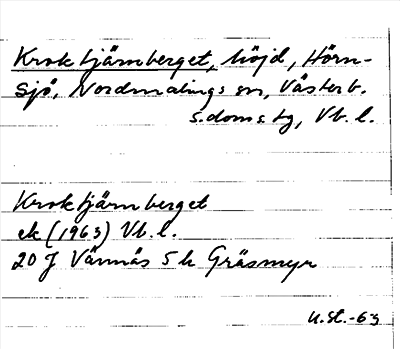 Kroktjärnberget, höjd, Hörn-
sjö, Nordmalings sn, Västerb.
s.doms.tg, Vb. l.
Kroktjärnberget
ek (1963) Vb. l.
20 J Vännäs 5 h Gräsmyr
U.St.-63